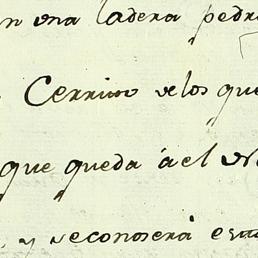 n una ladera pedr
Cerrito de los que
que queda á el No
y reconocerá esta